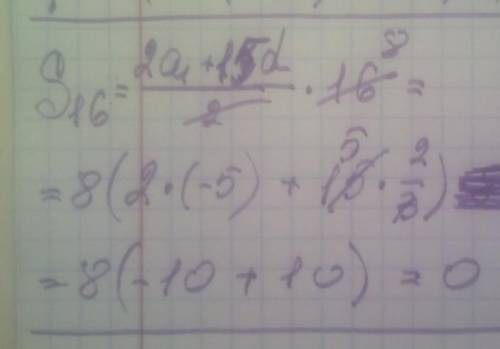 S₁₆ = (2a₁ + 15d)/2 · 16 ⁸ =
= 8(2 · (-5) + 15 ⁵ · 2/3)
= 8(-10 + 10) = 0